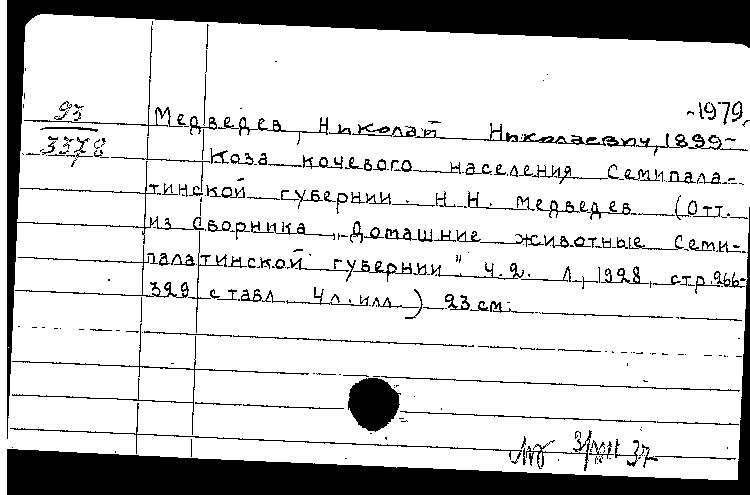 -1979.
93
3378
Медведев, Николай Николаевич, 1899-
Коза кочевого населения Семипала-
тинской губернии. Н. Н. Медведев (Отт.
из сборника „Домашние животные Семи-
палатинской губернии" ч. 2. Л., 1928, стр. 266-
329 с табл. 4 л. илл.) 23 см.
3/VIII 37